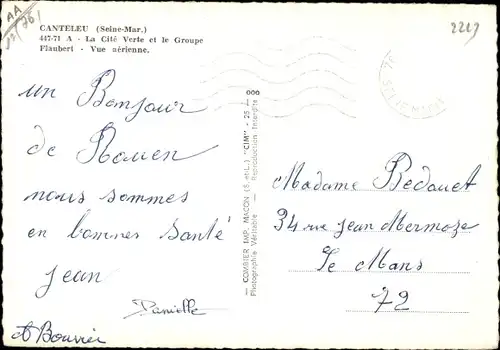 CANTELEU (Seine-Mar.)
447-71 A - La Cité Verte et le Groupe
Flaubert - Vue aérienne.
2219
un Bonjour
de Rouen
nous sommes
en bonnes santé
jean
Danielle
— COMBIER IMP. MACON (S.-et-L.) "CIM" - 25 —
Photographie Véritable — Reproduction Interdite
Madame Bedouet
34 rue jean Mermoze
Le Mans
72